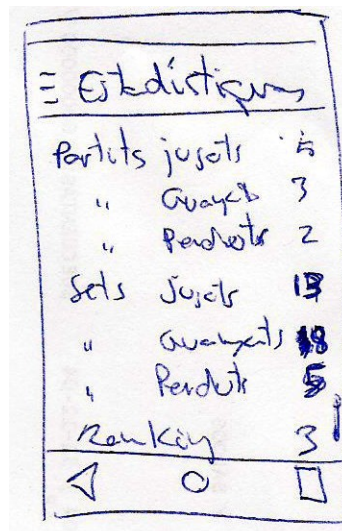 Estadístiques
Partits jugats 5
" Guanyats 3
" Perduts 2
Sets Jugats 13
" Guanyats 8
" Perduts 5
Ranking 3